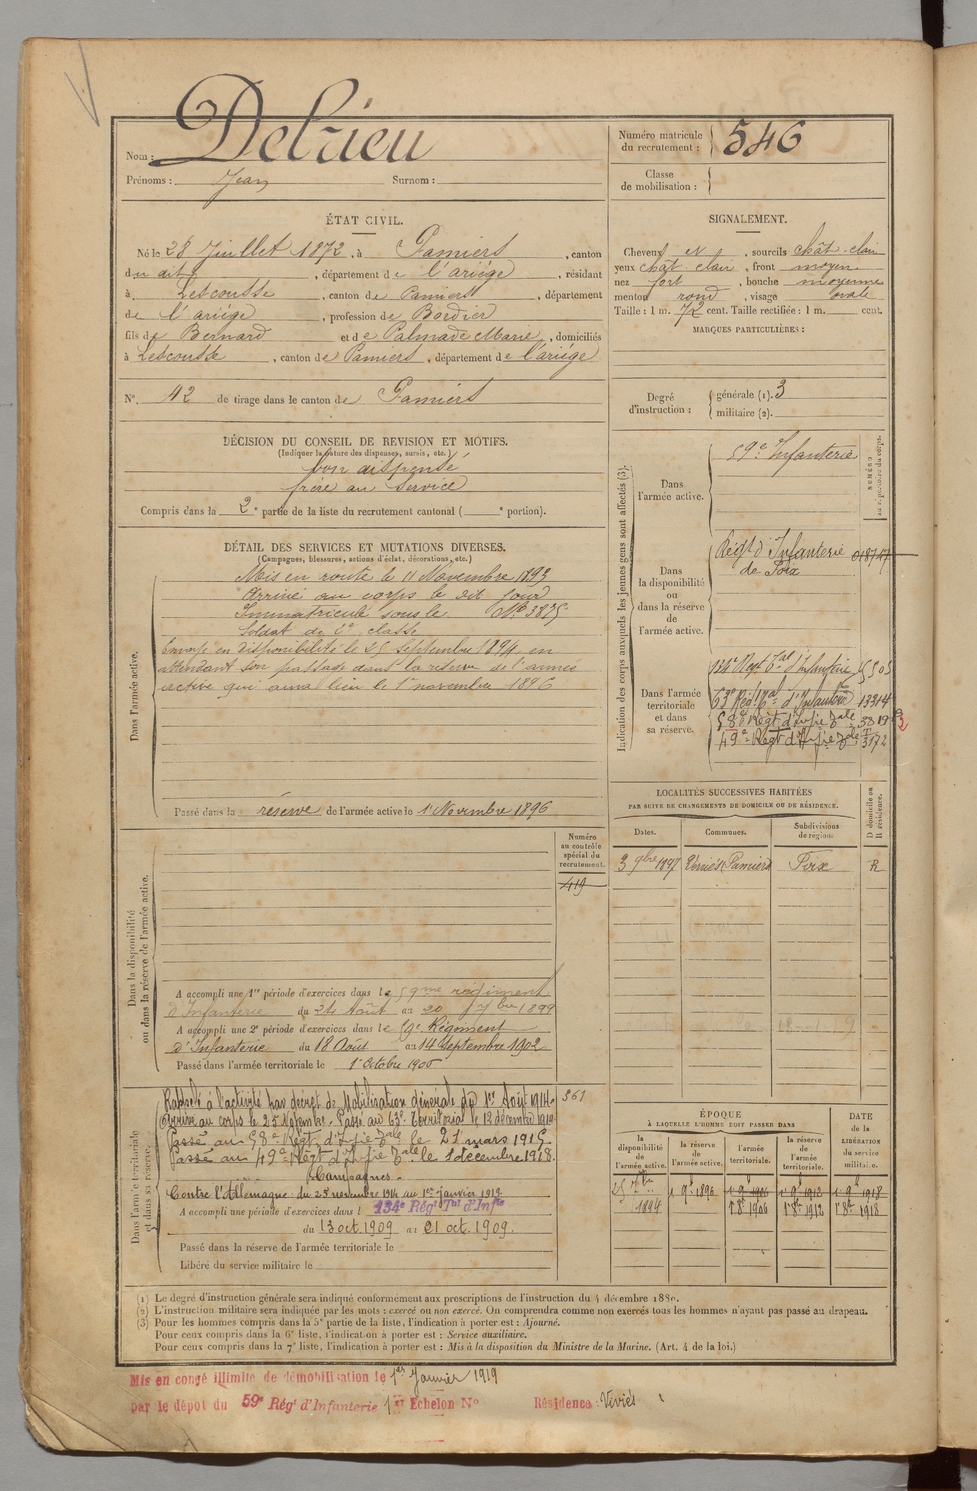 Nom : Delrieu
Prénoms : Jean Surnom :
Numéro matricule du recrutement : 546
Classe de mobilisation :
ÉTAT CIVIL.
Né le 28 Juillet 1872, à Pamiers, canton
du dit, département de l'ariège, résidant
à Lescousse, canton de Pamiers, département
de l'ariège, profession de Bordier
fils de Bernard et de Palmade Marie, domiciliés
à Lescousse, canton de Pamiers, département de l'ariège
N°. 42 de tirage dans le canton de Pamiers
SIGNALEMENT.
Cheveux et, sourcils chât-clair
yeux chât clair, front moyen
nez fort, bouche moyenne
menton rond, visage ovale
Taille : 1 m. 72 cent. Taille rectifiée : 1 m. cent.
MARQUES PARTICULIÈRES :
Degré d'instruction :
générale (1). 3
militaire (2).
DÉCISION DU CONSEIL DE REVISION ET MOTIFS.
(Indiquer la nature des dispenses, sursis, etc.)
bon dispensé
frère au service
Compris dans la 2e partie de la liste du recrutement cantonal ( e portion).
DÉTAIL DES SERVICES ET MUTATIONS DIVERSES.
(Campagnes, blessures, actions d'éclat, décorations, etc.)
Dans l'armée active.
Mis en route le 11 Novembre 1893
Arrivé au corps le dit jour
Immatriculé sous le No 3875
Soldat de 2e classe
Envoyé en disponibilité le 25 Septembre 1894 en
attendant son passage dans la réserve de l'armée
active qui aura lieu le 1er novembre 1896
Passé dans la réserve de l'armée active le 1er Novembre 1896
Indication des corps auxquels les jeunes gens sont affectés (3).
NUMÉRO au répertoire du corps.
Dans l'armée active.
59e Infanterie
Dans la disponibilité ou dans la réserve de l'armée active.
Régt d'Infanterie de Foix 01877
Dans l'armée territoriale et dans sa réserve.
134e Regt Tal d'Infanterie 5505
63e Régt Tal d'Infanterie 13314
58e Régt d'Infie Tale 3819
49e Régt d'Infie Tale 3172
LOCALITÉS SUCCESSIVES HABITÉES
PAR SUITE DE CHANGEMENTS DE DOMICILE OU DE RÉSIDENCE.
Dates. Communes. Subdivisions de région. D domicile ou R résidence.
3 9bre 1897 Pamiers Foix R
Dans la disponibilité ou dans la réserve de l'armée active.
Numéro au contrôle spécial du recrutement.
419
A accompli une 1re période d'exercices dans le 59me régiment
d'Infanterie du 24 Août au 20 7bre 1899
A accompli une 2e période d'exercices dans le 59e Régiment
d'Infanterie du 18 Août au 14 Septembre 1902
Passé dans l'armée territoriale le 1er Octobre 1906
Dans l'armée territoriale et dans sa réserve.
361
Rappelé à l'activité par décret de Mobilisation générale du 1er Août 1914
Arrivé au corps le 25 Novembre. Passé au 63e Territorial le 12 décembre 1914
Passé au 58e Régt d'Infie Tale le 21 mars 1915
Passé au 49e Régt d'Infie Tale le 1 décembre 1918
Campagnes
Contre l'Allemagne : du 25 novembre 1914 au 1er janvier 1919
A accompli une période d'exercices dans l 134e Régt Tal d'Infie
du 13 oct. 1909 au 21 oct. 1909.
Passé dans la réserve de l'armée territoriale le
Libéré du service militaire le
ÉPOQUE
À LAQUELLE L'HOMME DOIT PASSER DANS
DATE de la LIBÉRATION du service militaire.
la disponibilité de l'armée active. la réserve de l'armée active. l'armée territoriale. la réserve de l'armée territoriale.
25 7bre 1894 1 9bre 1896 1 9 1906 1 9 1912 1 9 1918
1er 8bre 1906 1er 8bre 1912 1er 8bre 1918
(1) Le degré d'instruction générale sera indiqué conformément aux prescriptions de l'instruction du 4 décembre 1889.
(2) L'instruction militaire sera indiquée par les mots : exercé ou non exercé. On comprendra comme non exercés tous les hommes n'ayant pas passé au drapeau.
(3) Pour les hommes compris dans la 5e partie de la liste, l'indication à porter est : Ajourné.
Pour ceux compris dans la 6e liste, l'indication à porter est : Service auxiliaire.
Pour ceux compris dans la 7e liste, l'indication à porter est : Mis à la disposition du Ministre de la Marine. (Art. 4 de la loi.)
Mis en congé illimité de démobilisation le 1er Janvier 1919
par le dépôt du 59e Régt d'Infanterie 1er Echelon No Résidence : Viviès